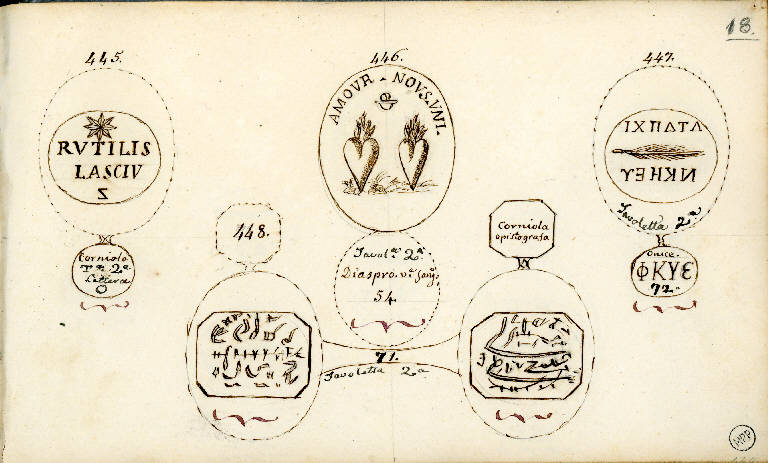 18.
445.
RVTILIS
LASCIV
S
Corniola
Tª 2ª
Lettera
O
446.
AMOVR - NOVS.VNI.
Tavolª 2ª
Diaspro
54.
447.
ΙΧΠΑΤΛ
Tavoletta 2ª
Onice.
ΦΚΥΕ
72.
448.
Corniola
opistografa
71.
Tavoletta 2ª